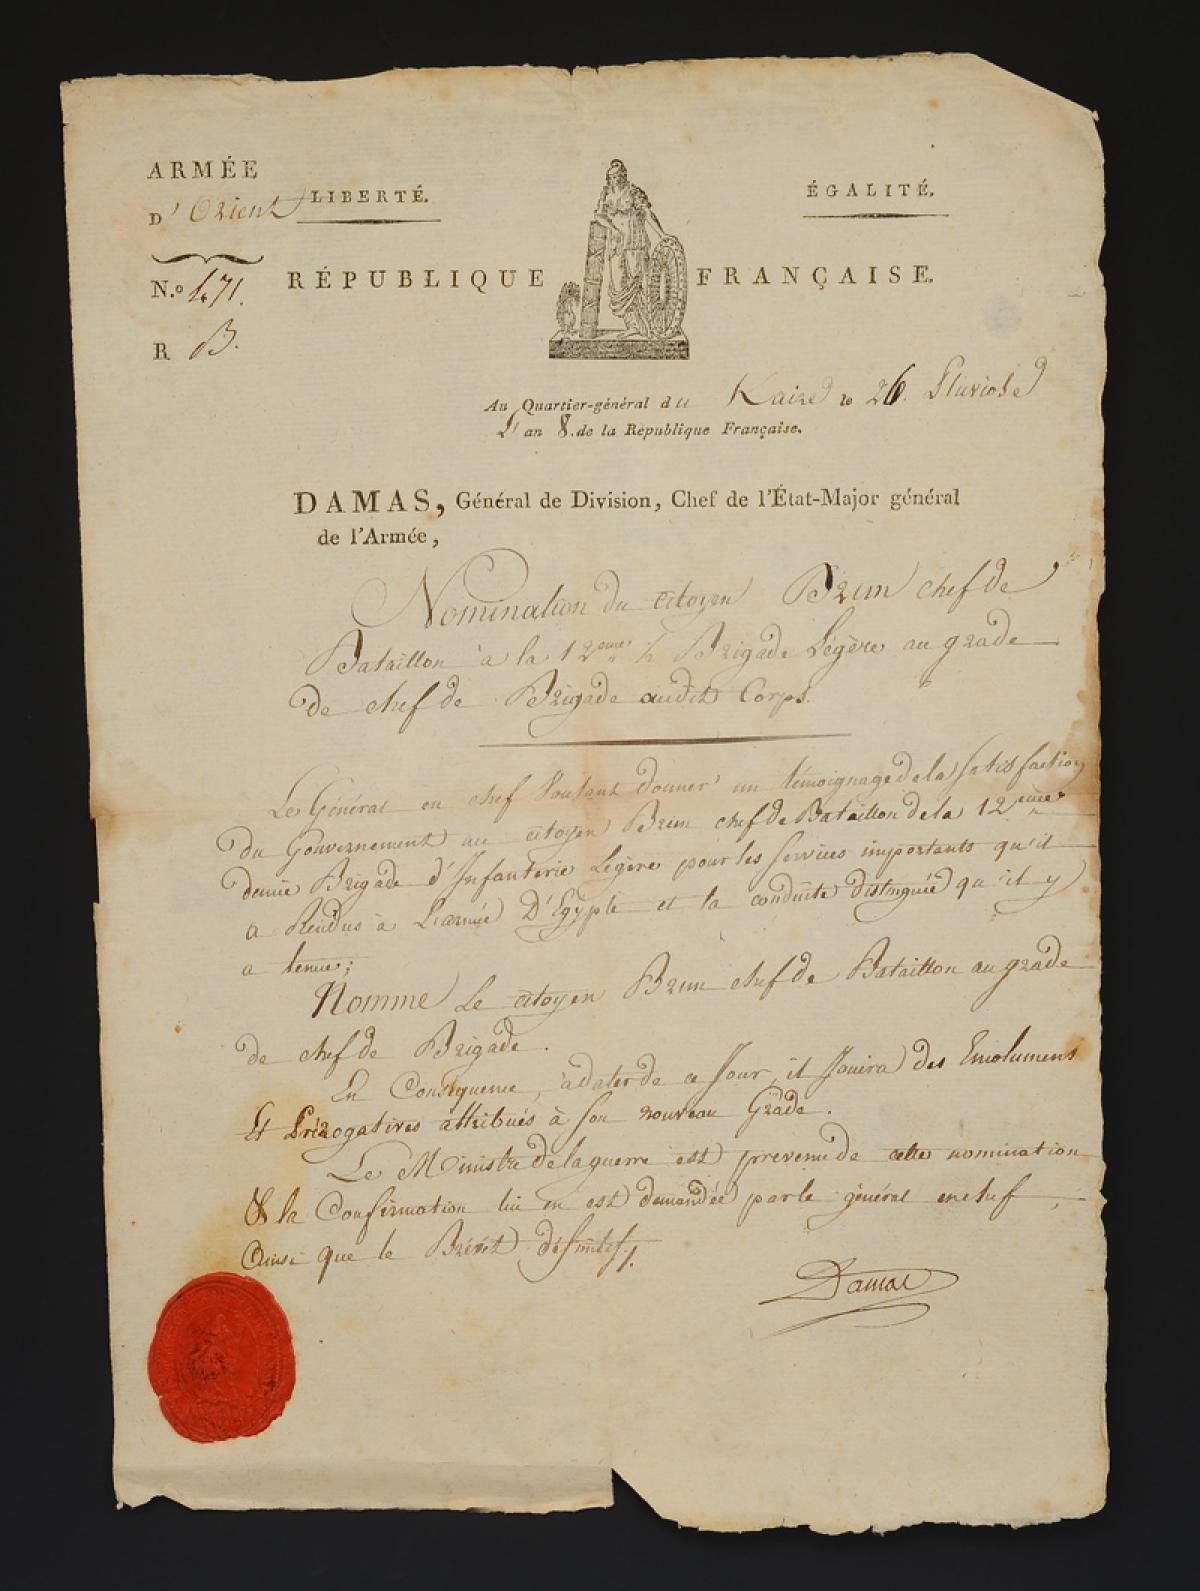 ARMÉE
D' Orient
LIBERTÉ.
ÉGALITÉ.
N.o 471.
R B.
RÉPUBLIQUE FRANÇAISE.
Au Quartier-général du Kaire le 26. Pluviose
L'an 8. de la République Française.
DAMAS, Général de Division, Chef de l'État-Major général
de l'Armée,
Nomination du citoyen Brun chef de
Bataillon à la 12eme ½ Brigade Légère au grade
de chef de Brigade audit Corps.
Le Général en chef Voulant donner un témoignage de la Satisfaction
du Gouvernement au citoyen Brun chef de Bataillon de la 12eme
demie Brigade d'Infanterie Légère pour les Services importants qu'il
a Rendus à L'armée D'Egypte et la conduite distinguée qu'il y
a tenue;
Nomme Le citoyen Brun chef de Bataillon au grade
de chef de Brigade.
En Consequence, à dater de ce Jour, il Jouira des Emolumens
Et Prérogatives attribués à Son nouveau Grade.
Le Ministre de la guerre est prevenu de cette nomination
& la Confirmation lui en est demandée par le général en chef,
Ainsi que le Brévet définitif./.
Damas